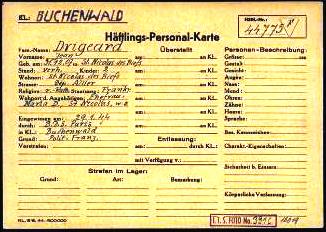 KL: BUCHENWALD
Häft.-Nr.: 44773
Häftlings-Personal-Karte
Fam.-Name: Drigeard
Vorname: Jean
Geb. am: in St. Nicolas des Biefs
Stand: verh. Kinder:
Wohnort: St. Nicolas des Biefs
Strasse: Dep. Allier
Religion: Staatsang.: Frankr.
Wohnort d. Angehörigen: Ehefrau:
Maria D., St. Nicolas, w.o.
Eingewiesen am: 29.1.44
durch: B.d.S. Paris
in KL.: Buchenwald
Grund: Polit.-Franz.
Vorstrafen:
Überstellt
am: an KL.
am: an KL.
am: an KL.
am: an KL.
am: an KL.
am: an KL.
Entlassung:
am: durch KL.:
mit Verfügung v.:
Personen-Beschreibung:
Grösse:
Gestalt:
Gesicht:
Augen:
Nase:
Mund:
Ohren:
Zähne:
Haare:
Sprache:
Bes. Kennzeichen:
Charakt.-Eigenschaften:
Sicherheit b. Einsatz:
Körperliche Verfassung:
Strafen im Lager:
Grund: Art: Bemerkung:
I.T.S. FOTO No